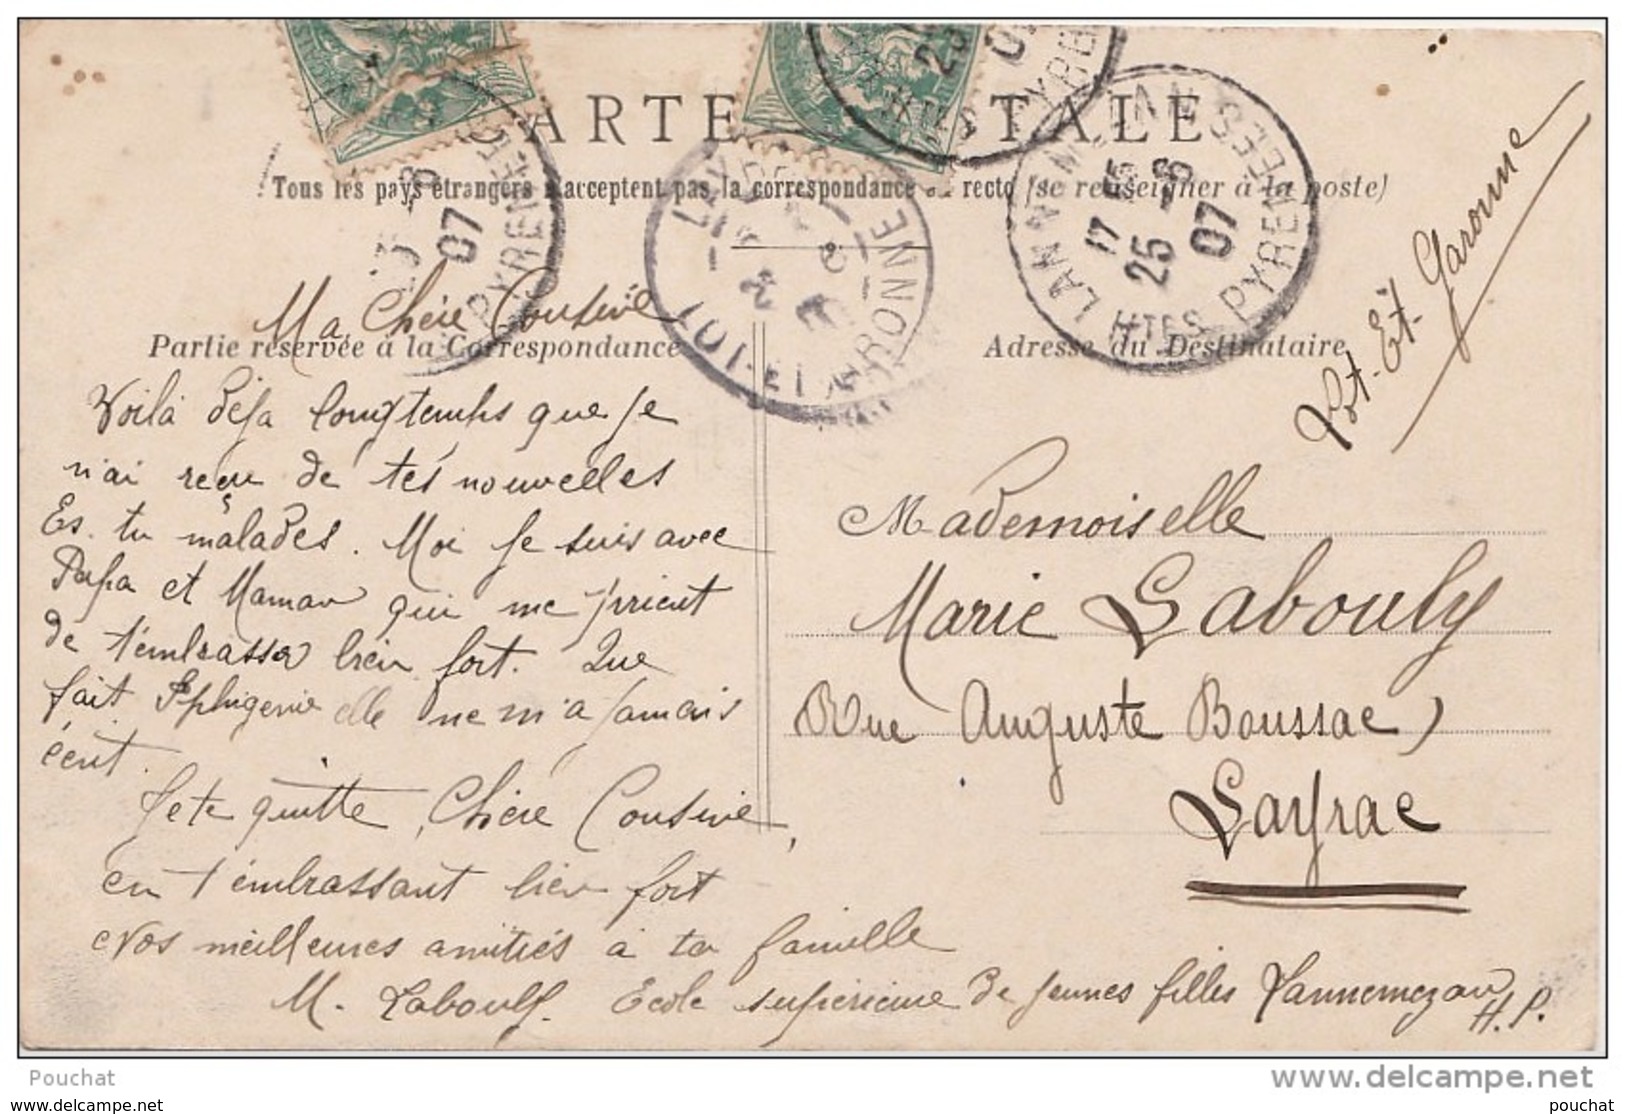 CARTE POSTALE
Tous les pays étrangers n'acceptent pas la correspondance au recto (se renseigner à la poste)
LANNEMEZAN
17 15
25 -8
07
HTES PYRENEES
-8
07
PYRENEES
25
07
HTES PYRENEES
LAYRAC
LOT-ET-GARONNE
Partie réservée à la Correspondance
Adresse du Destinataire
Ma Chère Cousine
Voilà déjà longtemps que je
n'ai reçu de tes nouvelles
Es-tu malades. Moi je suis avec
Papa et Maman qui me prient
de t'embrasser bien fort. Que
fait Iphigenie elle ne m'a jamais
écrit.
Je te quitte, Chère Cousine,
en t'embrassant bien fort
Nos meilleures amitiés à ta famille
M. Labouly. Ecole supérieure de jeunes filles Lannemezan
H. P.
Lot-Et-Garonne
Mademoiselle
Marie Labouly
Rue Auguste Boussac
Layrac
Pouchat
www.delcampe.net
pouchat
pouchat